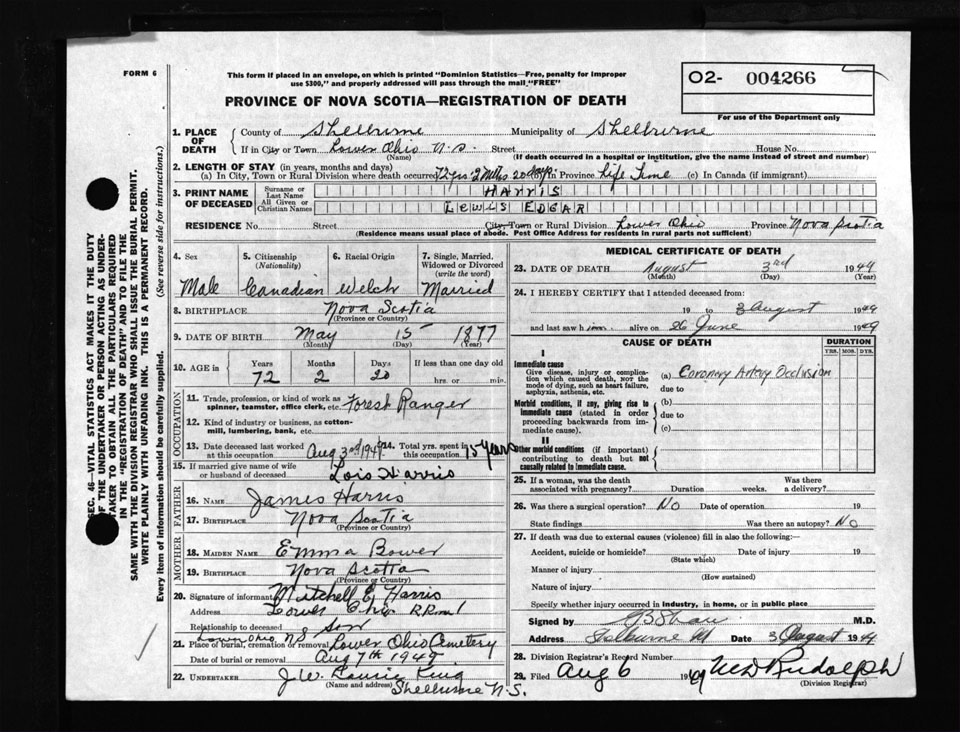 FORM 6
This form if placed in an envelope, on which is printed "Dominion Statistics—Free, penalty for improper
use $300," and properly addressed will pass through the mail "FREE"
O2- 004266
For use of the Department only
PROVINCE OF NOVA SCOTIA—REGISTRATION OF DEATH
SEC. 46—VITAL STATISTICS ACT MAKES IT THE DUTY
OF THE UNDERTAKER OR PERSON ACTING AS UNDER-
TAKER TO OBTAIN ALL THE PARTICULARS REQUIRED
IN THE "REGISTRATION OF DEATH" AND TO FILE THE
SAME WITH THE DIVISION REGISTRAR WHO SHALL ISSUE THE BURIAL PERMIT.
WRITE PLAINLY WITH UNFADING INK. THIS IS A PERMANENT RECORD.
Every item of information should be carefully supplied. (See reverse side for instructions.)
1. PLACE OF DEATH County of Shelburne Municipality of Shelburne
If in City or Town Lower Ohio N.S. Street House No.
(Name) (If death occurred in a hospital or institution, give the name instead of street and number)
2. LENGTH OF STAY (in years, months and days)
(a) In City, Town or Rural Division where death occurred 72 yrs 2 mths 20 days (b) In Province Life Time (c) In Canada (if immigrant)
3. PRINT NAME OF DECEASED Surname or Last Name HARRIS
All Given or Christian Names LEWIS EDGAR
RESIDENCE No. Street City, Town or Rural Division Lower Ohio Province Nova Scotia
(Residence means usual place of abode. Post Office Address for residents in rural parts not sufficient)
4. Sex 5. Citizenship (Nationality) 6. Racial Origin 7. Single, Married, Widowed or Divorced (write the word)
Male Canadian Welch Married
8. BIRTHPLACE Nova Scotia
(Province or Country)
9. DATE OF BIRTH May 15 1877
(Month) (Day) (Year)
10. AGE in Years Months Days If less than one day old
72 2 20 hrs. or min.
OCCUPATION
11. Trade, profession, or kind of work as spinner, teamster, office clerk, etc. Forest Ranger
12. Kind of industry or business, as cotton-mill, lumbering, bank, etc.
13. Date deceased last worked at this occupation Aug 3rd 1949 14. Total yrs. spent in this occupation 15 years
15. If married give name of wife or husband of deceased Lois Harris
FATHER
16. NAME James Harris
17. BIRTHPLACE Nova Scotia
(Province or Country)
MOTHER
18. MAIDEN NAME Emma Bower
19. BIRTHPLACE Nova Scotia
(Province or Country)
20. Signature of informant Mitchell E Harris
Address Lower Ohio R.R. no 1
Relationship to deceased Son
Lower Ohio, N.S.
21. Place of burial, cremation or removal Lower Ohio Cemetery
Date of burial or removal Aug 7th 1949
22. UNDERTAKER J. W. King
(Name and address) Shelburne N.S.
MEDICAL CERTIFICATE OF DEATH
23. DATE OF DEATH August 3rd 1949
(Month) (Day) (Year)
24. I HEREBY CERTIFY that I attended deceased from:
19 to 3 August 1949
and last saw him alive on 26 June 1949
CAUSE OF DEATH DURATION
YRS. MOS. DYS.
I
Immediate cause
Give disease, injury or complication which caused death, not the mode of dying, such as heart failure, asphyxia, asthenia, etc.
(a) Coronary Artery Occlusion
due to
Morbid conditions, if any, giving rise to immediate cause (stated in order proceeding backwards from immediate cause).
(b)
due to
(c)
II
Other morbid conditions (if important) contributing to death but not causally related to immediate cause.
25. If a woman, was the death associated with pregnancy? Duration weeks. Was there a delivery?
26. Was there a surgical operation? No Date of operation 19
State findings Was there an autopsy? No
27. If death was due to external causes (violence) fill in also the following:—
Accident, suicide or homicide? Date of injury 19
(State which)
Manner of injury
(How sustained)
Nature of injury
Specify whether injury occurred in industry, in home, or in public place
Signed by M.D.
Address Date 3 August 1949
28. Division Registrar's Record Number
29. Filed Aug 6 1949 Rudolph
(Division Registrar)